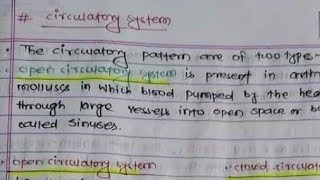 # circulatory system
• The circulatory pattern are of two types-
• open circulatory system is present in
molluscs in which blood pumped by the
through large vessels into open space or
called sinuses.
• open circulatory system • closed